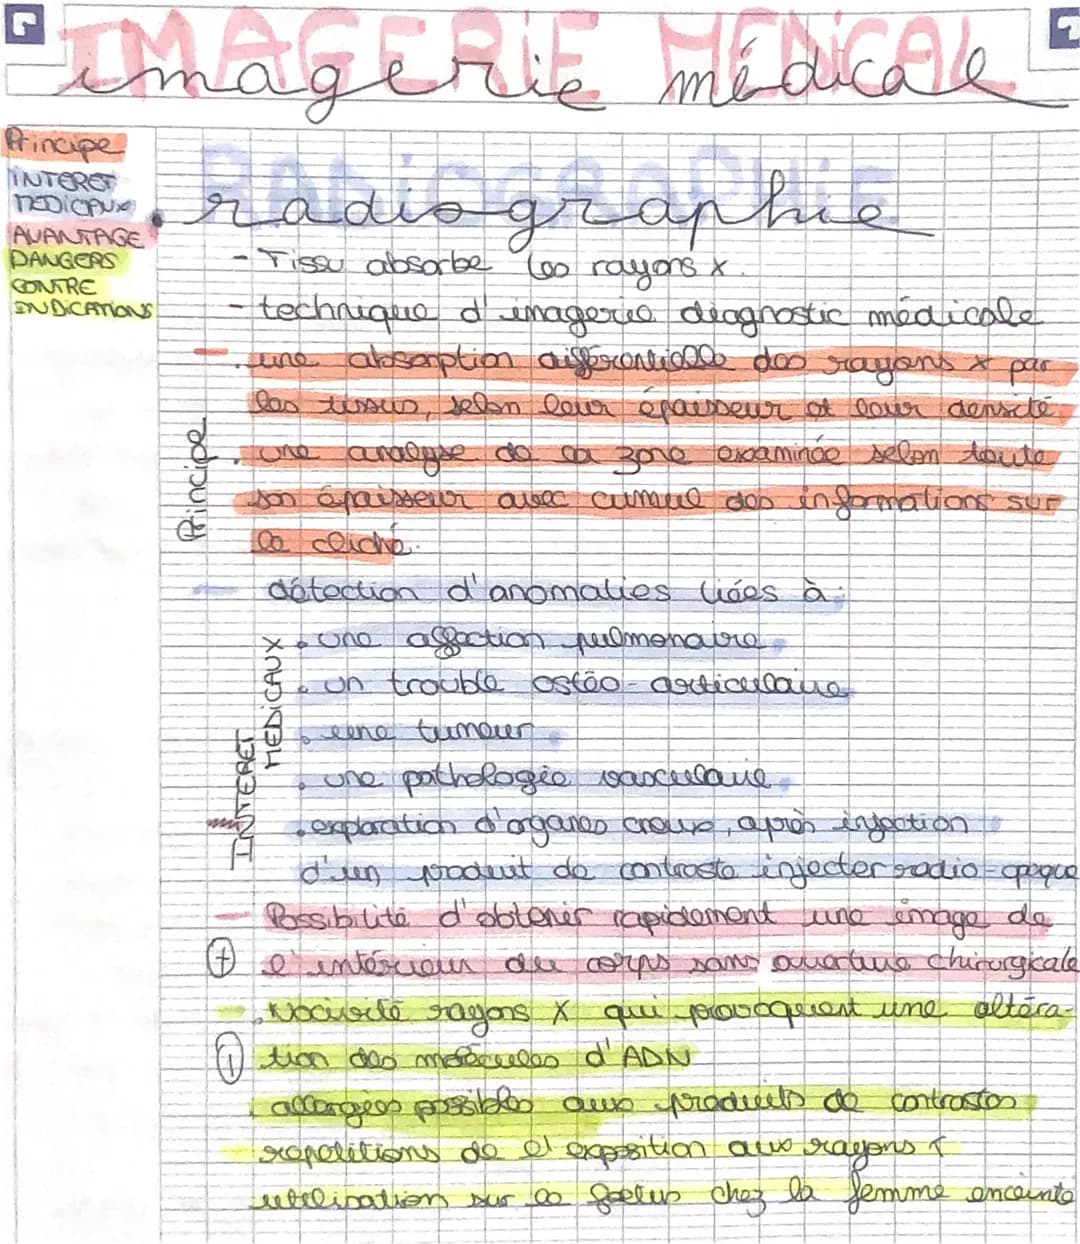 IMAGERIE MEDICAL
imagerie médical
Principe
INTERET
MEDICAUX
AVANTAGE
DANGERS
CONTRE
INDICATIONS
RADIOGRAPHIE
radiographie
- Tissu absorbe les rayons x.
- technique d'imagerie diagnostic médicale
Principe
- . une absorption différentielle des rayons x par
les tissus, selon leur épaisseur et leur densité
. une analyse de la zone examinée selon toute
son épaisseur avec cumul des informations sur
le cliché.
INTERET
MEDICAUX
- détection d'anomalies liées à :
. une affection pulmonaire
. un trouble ostéo-articulaire
. une tumeur
. une pathologie vasculaire
. exploration d'organes creux, après injection
d'un produit de contraste injecter radio-opaque
- Possibilité d'obtenir rapidement une image de
+ l'intérieur du corps sans ouverture chirurgicale
- . Nocivité rayons X qui provoquent une altéra-
! tion des molécules d'ADN
allergies possibles aux produits de contrastes
- repetitions de l'exposition aux rayons
utilisation sur le foetus chez la femme enceinte